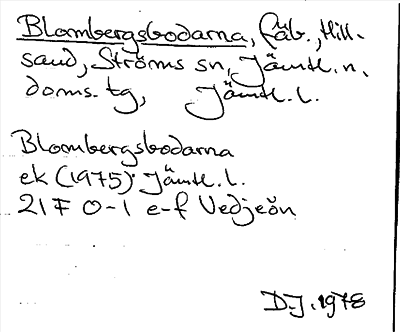 Blombergsbodarna, fäb., Hill-
sand, Ströms sn, Jämtl. n.
doms. tg, Jämtl. l.
Blombergsbodarna
ek (1975) Jämtl. l.
21F 0-1 e-f Vedjeön
D.J. 1978